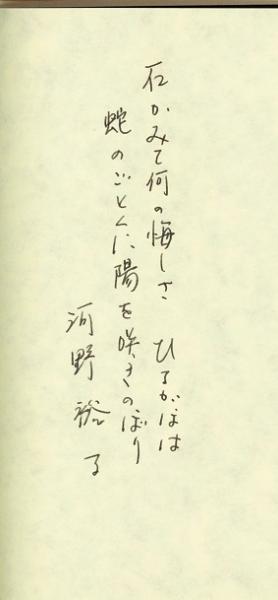 石かみて何の悔しさ ひるがほは
蛇のごとくに陽を咲きのぼり
河野裕子